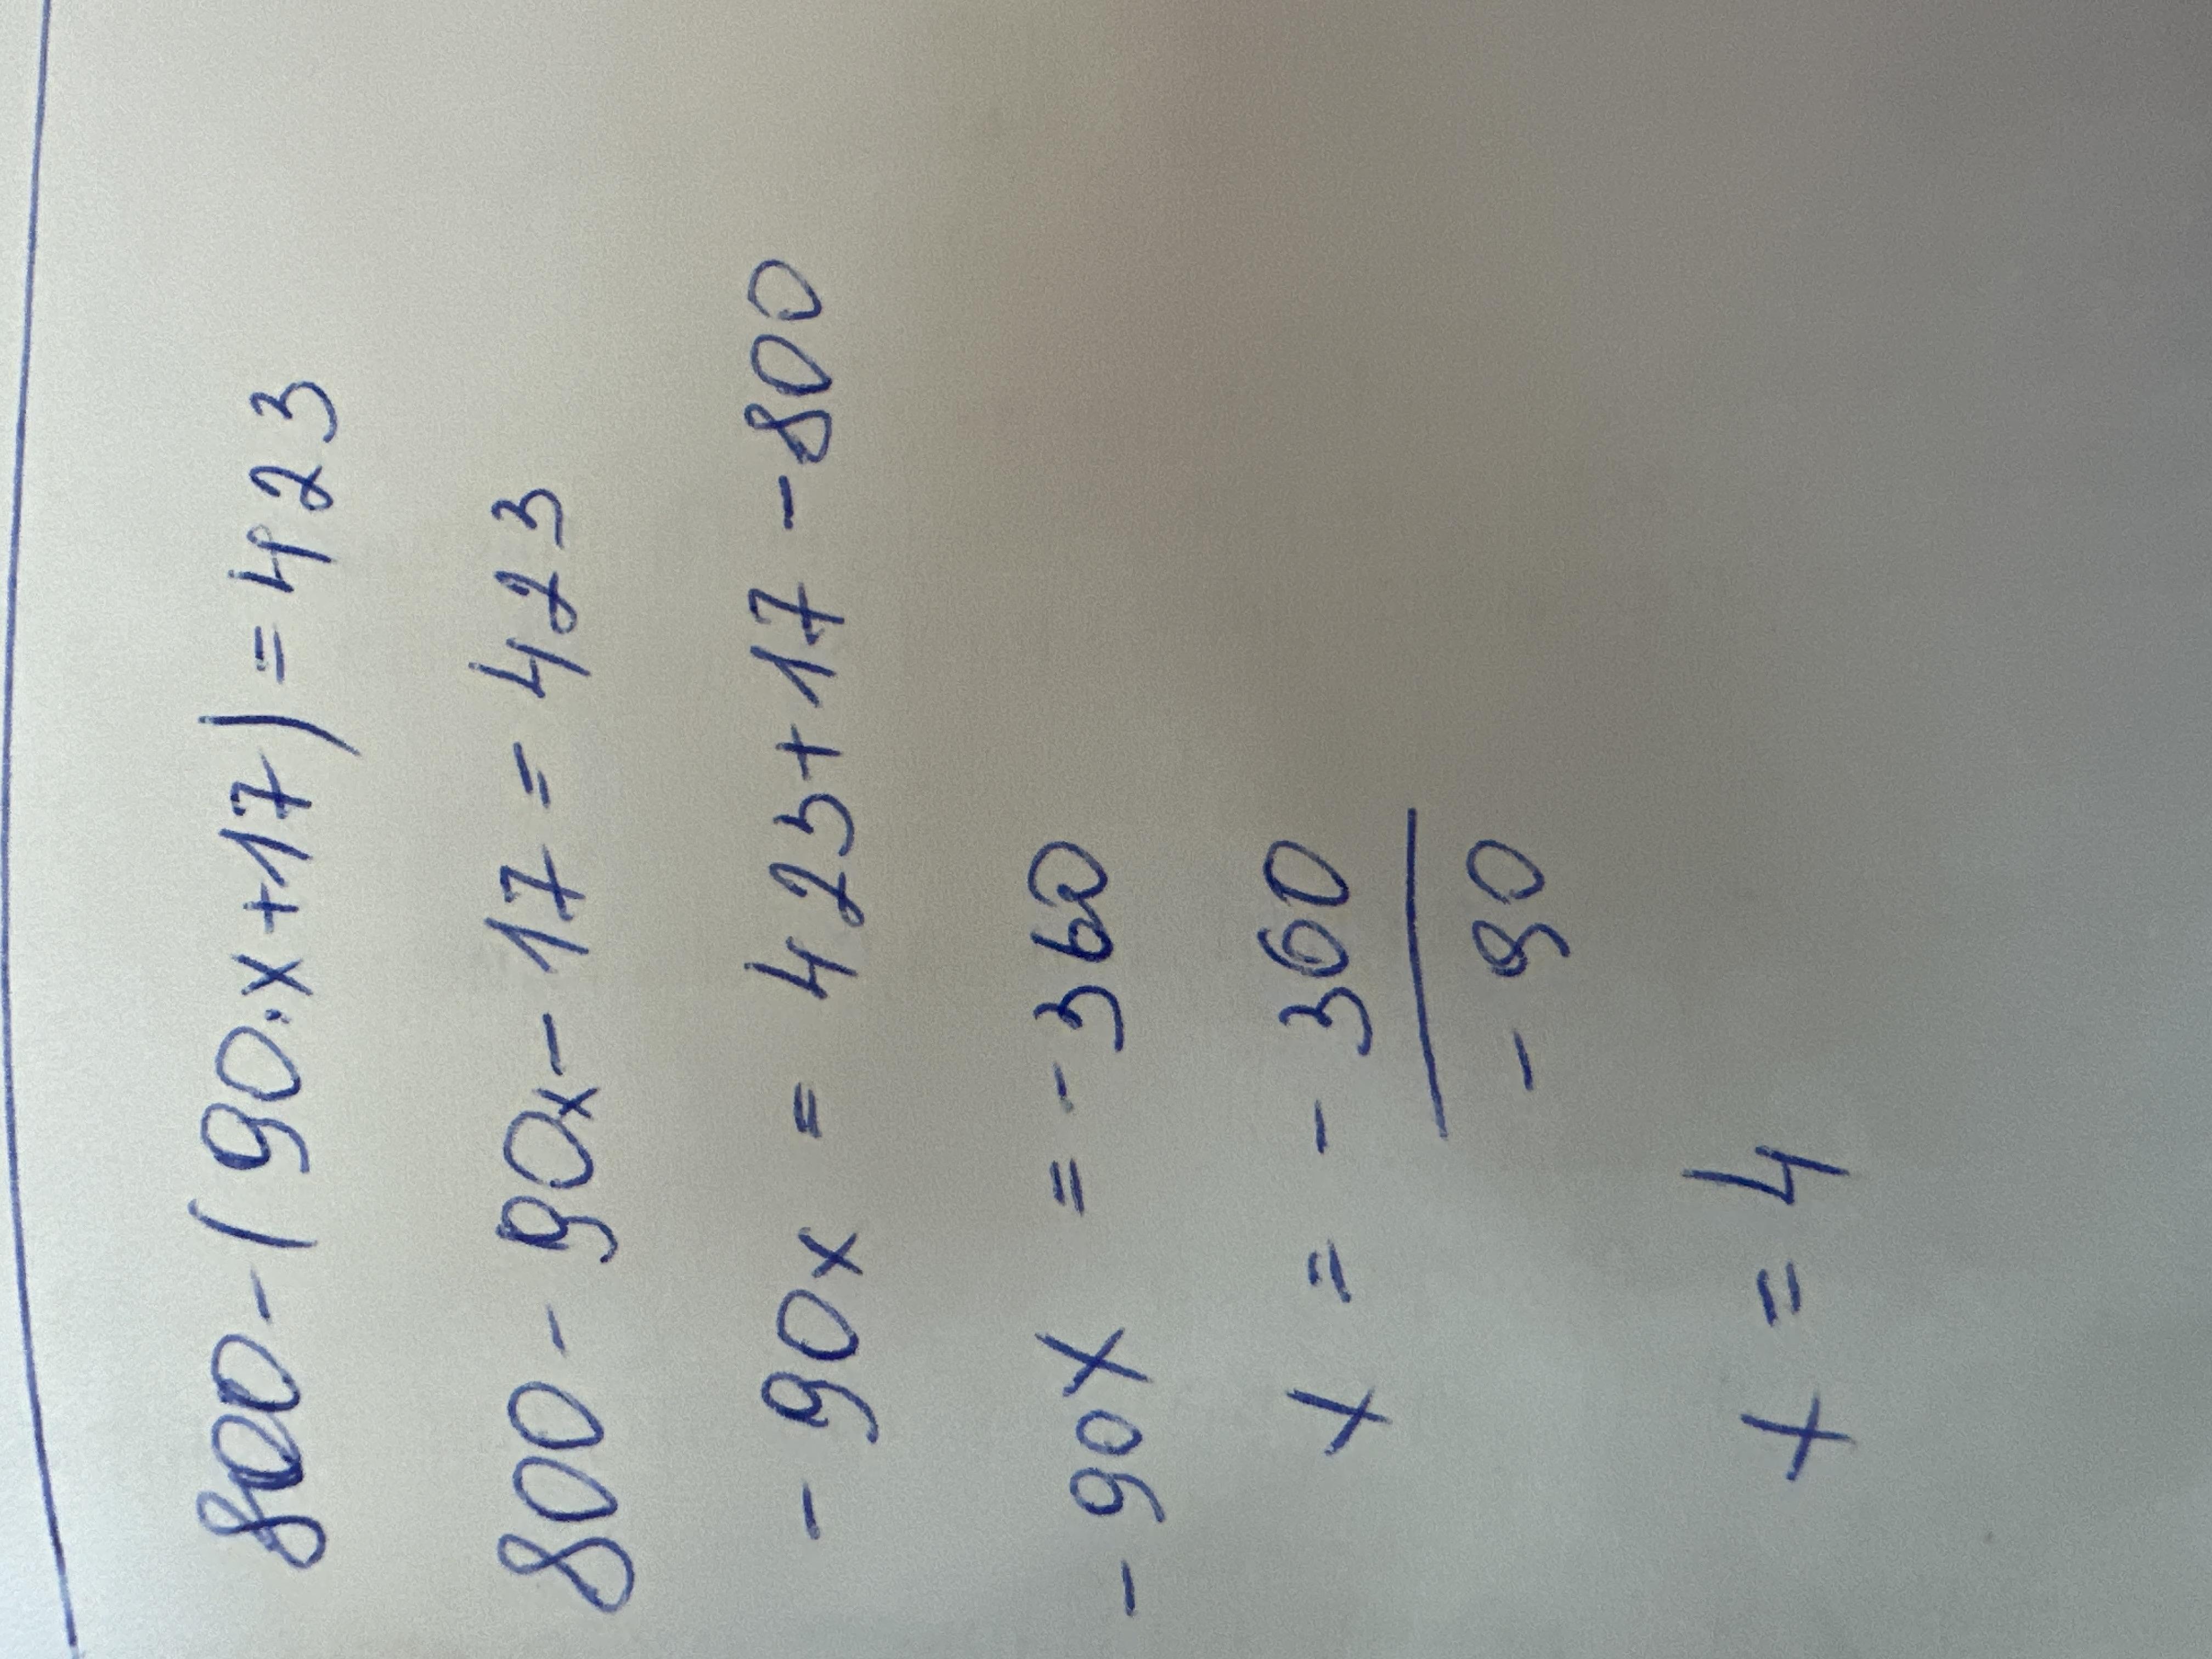 800-(90.x+17)=423
800-90x-17=423
-90x = 423+17-800
-90x = -360
x = -360
-90
x=4